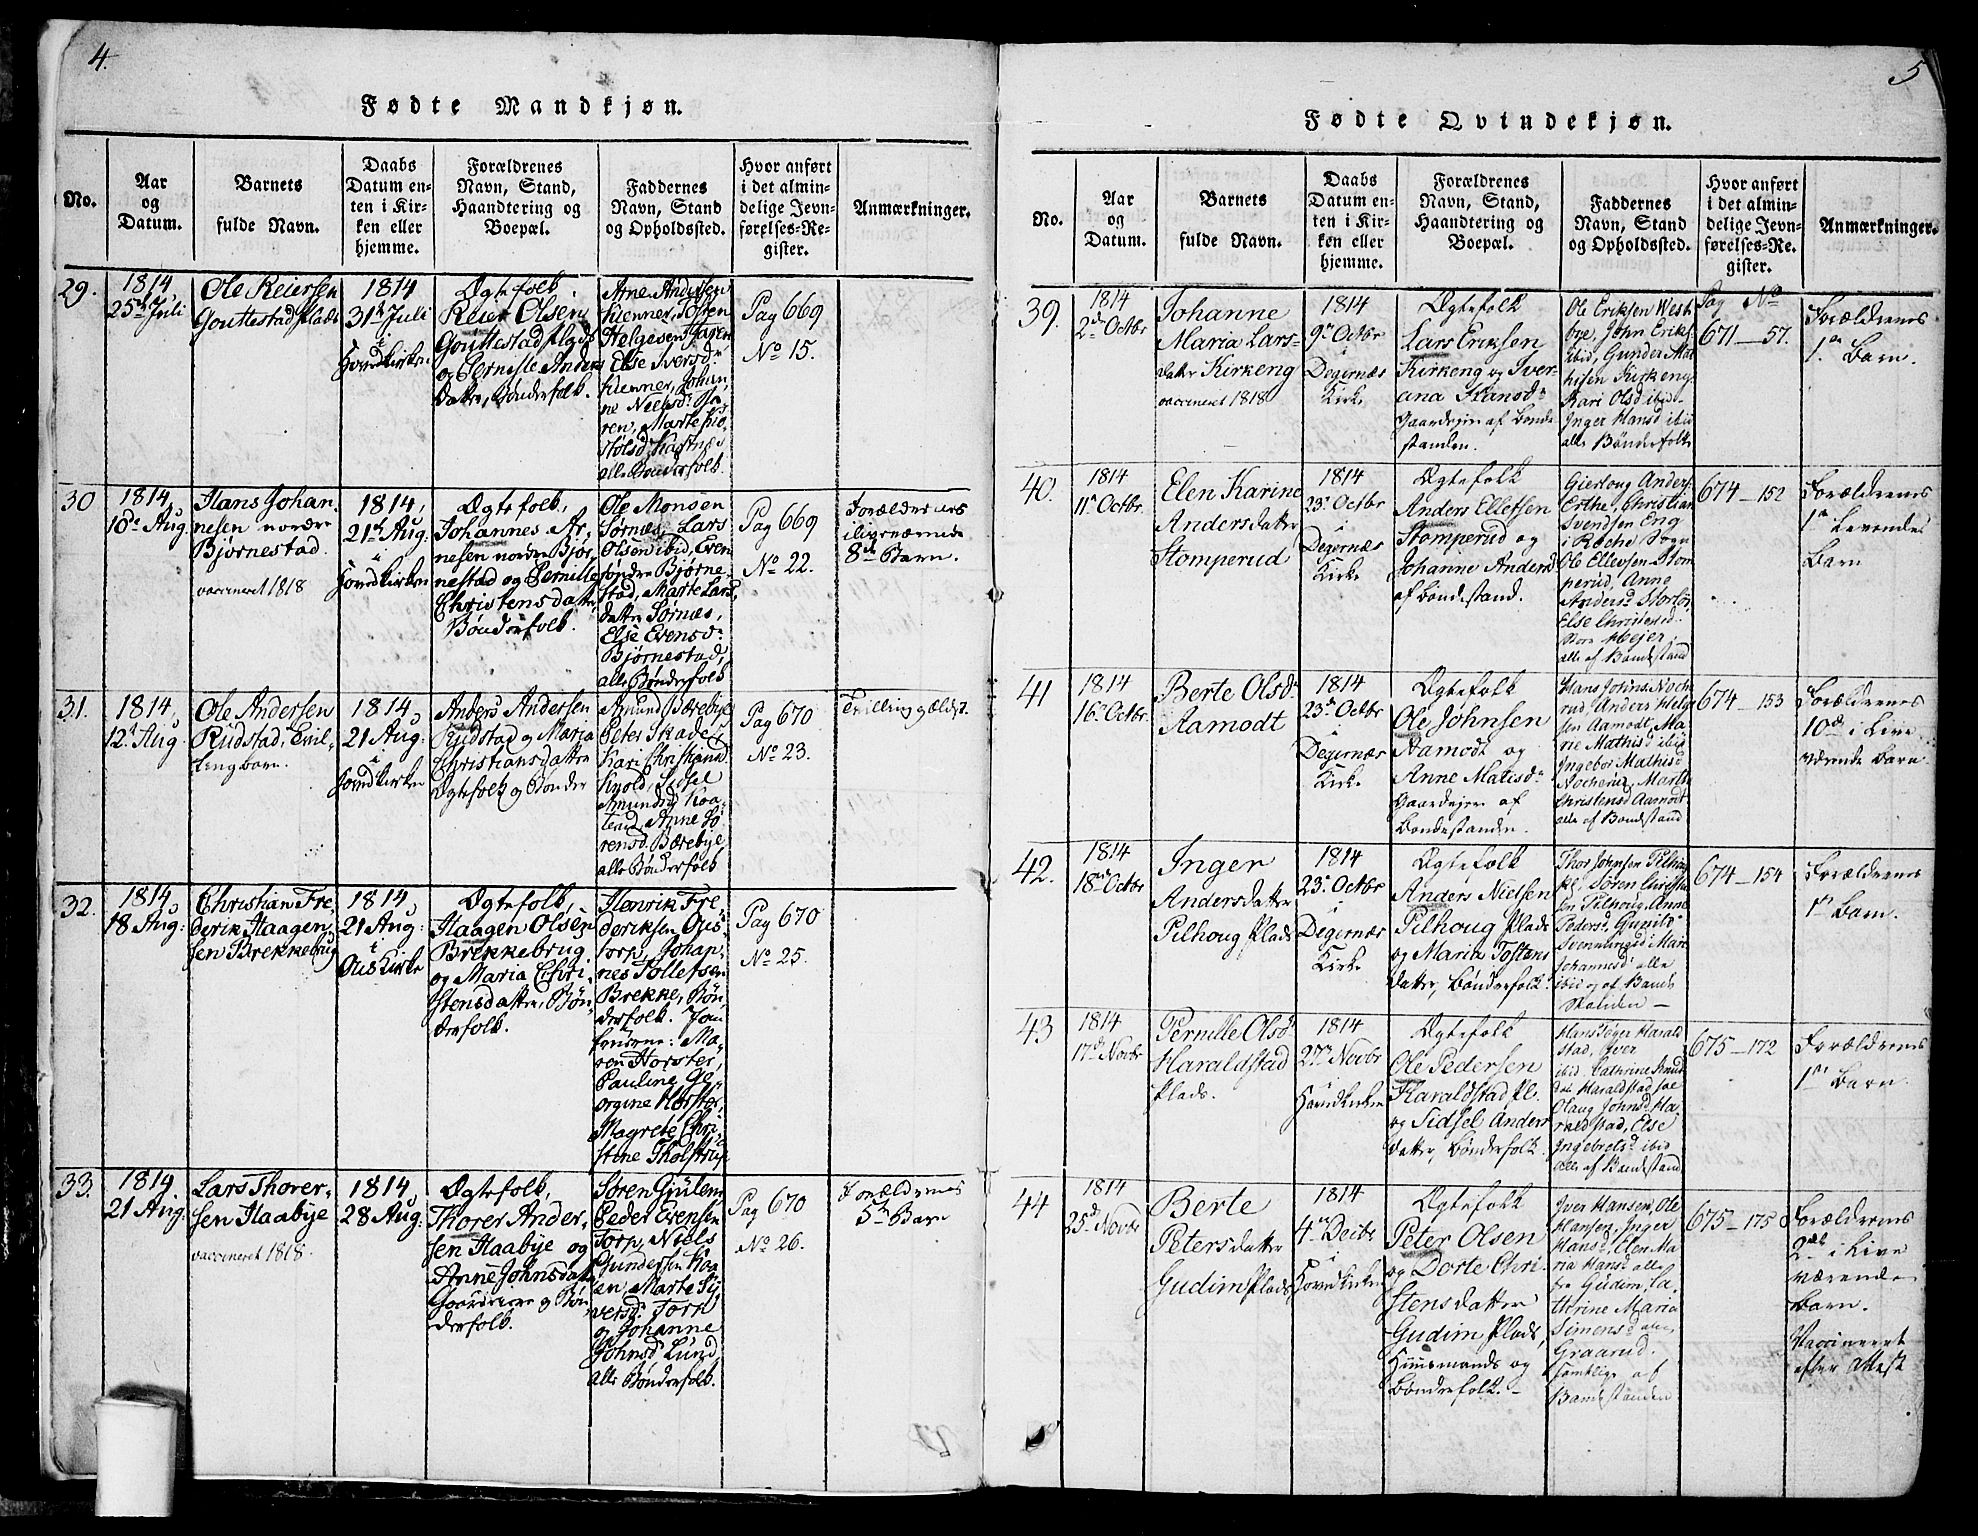 4.
Fødte Mandkjøn.
No.
Aar
og
Datum.
Barnets
fulde Navn.
Daabs
Datum en-
ten i Kir-
ken eller
hjemme.
Forældrenes
Navn, Stand,
Haandtering og
Boepæl.
Faddernes
Navn, Stand
og Opholdssted.
Hvor anført
i det almin-
delige Jevn-
førelses-Re-
gister.
Anmærkninger.
29.
1814
25de Juli
Ole Reiersen
Gouttestad Plads
1814
31te Juli
i
Hovedkirken
Ægtefolk,
Reier Olsen,
Gouttestad Plads
og Pernille Anders
Datter, Bønderfolk.
Arne Andersen
Helgesen
Else Iversdr
alle Bønderfolk
Pag 669
No 15.
30
1814,
10de Aug
Hans Johan-
nesen nordre
Bjørnestad.
vaccineret 1818
1814,
21de Aug:
i
Hovedkirken
Ægtefolk,
Johannes Ar-
nesen nordre Bjør-
nestad og Pernille
Christensdatter,
Bønderfolk.
Ole Monsen
Sørnæs, Lars
Olsen ibid, Even
søndre Bjørne-
stad, Marte Lars
datter Sørnæs,
Else Evensdr
Bjørnestad,
alle Bønderfolk
Pag 669
No 22.
Forældrenes
ilivværende
8de Barn.
31.
1814,
12te Aug:
Ole Andersen
Rudstad, Tvil-
lingbarn.
1814,
21 Aug:
i
Hovedkirken
Anders Andersen
Rudstad og Maria
Christiansdatter
Ægtefolk og Bønder
Amund Bærebye
Peter Skade,
Kari Christiansd
Knold, Sidsel
Amundsd
Anne Sø-
rensd. Bærebye
alle Bønderfolk
Pag 670
No 23.
Tvilling ældst.
32.
1814,
18 Aug:
Christian Fre-
derik Haagen-
sen Brekkebrug
1814,
21 Aug:
i
Ous Kirke
Ægtefolk,
Haagen Olsen
Brekkebrug
og Maria Chri-
stensdatter, Bøn-
derfolk.
Henrik Fre-
deriksen Ous-
torp, Johan-
nes Tollefsen
Brekke, Bøn-
derfolk. Jom
fruerne: Ma-
ren Horster,
Pauline Ge-
orgine Horster,
Magrete Chri-
stine Tholstrup
Pag 670
No 25.
33.
1814,
21 Aug:
Lars Thorer-
sen Haabye
vaccineret 1818.
1814,
28 Aug:
Ægtefolk,
Thorer Ander-
sen Haabye og
Anne Johnsdatter
Gaardeiere og Bøn-
derfolk.
Søren Gjulem
Peder Evensen
Torp, Niels
Gundersen
Marte Sy-
versd. Torp
og Johanne
Johnsd Lund
alle Bønderfolk.
Pag 670
No 26.
Forældrenes
5te Barn
5
Fødte Qvindekjøn.
No.
Aar
og
Datum.
Barnets
fulde Navn.
Daabs
Datum en-
ten i Kir-
ken eller
hjemme.
Forældrenes
Navn, Stand,
Haandtering og
Boepæl.
Faddernes
Navn, Stand
og Opholdssted.
Hvor anført
i det almin-
delige Jevn-
førelses-Re-
gister.
Anmærkninger.
39.
1814
2de Octbr
Johanne
Maria Lars-
datter Kirkeng
vaccineret 1818
1814
9de Octbr
i
Degernæs
Kirke
Ægtefolk
Lars Eriksen
Kirkeng og Iver-
ana Hansdr
Gaardejere af Bonde
standen.
Ole Eriksen West
bye, John Eriks
ibid, Gunder Mat
hisen Kirkeng
Kari Olsd ibid
Inger Hansd ibid
alle Bønderfolk
Pag No
671 — 57.
Forældrenes
1te Barn.
40.
1814
11te Octbr.
Elen Karine
Andersdatter
Stomperud
1814
23de Octbr
i
Degernæs
Kirke
Ægtefolk
Anders Ellefsen
Stomperud og
Johanne Andersd
af Bondestand.
Christian
Svendsen Eng
Ole Ellevsen Stom
perud, Anne
Andersd
Else Christensd
alle af Bondestand
674 — 152
Forældrenes
1te Levendes
Barn
41
1814
16de Octbr.
Berte Olsdr
Aamodt
1814
23de Octbr
i
Degernæs
Kirke
Ægtefolk
Ole Johnsen
Aamodt og
Anne Matisdr
Gaardejere af
Bondestanden.
Anders Helge
sen Aamodt, Ma
rie Mathisd ibid
Ingebor Mathisd
Marthe
Christensd Aamodt
alle af Bondestand
674 — 153
Forældrenes
10de i Live
værende Barn
42.
1814
18de Octbr
Inger
Andersdatter
Pilhoug Plads
1814
23de Octbr
i
Degernæs
Kirke
Ægtefolk
Anders Nielsen
Pilhoug Plads
og Maria Tostens
datter, Bønderfolk.
Thor Johnsen Pilhoug
Pl, Søren Christian
sen Pilhoug, Anne
Pedersd.
Johannesd alle
ibid og af Bonde
Standen —
674 — 154
Forældrenes
1te Barn.
43
1814
17de Novbr
Pernille Olsdr
Haraldstad
Plads.
1814
27de Novbr
i
Hovedkirken
Ægtefolk
Ole Pedersen
Haraldstad Pl.
og Sidsel Anders
datter, Bønderfolk.
Harald
stad, Iver
ibid. Cathrine Knuds
datr Haraldstad
Olaug Johnsd Ha-
raldstad, Else
Ingebretsd ibid
alle af Bondestand
675 — 172
Forældrenes
1te Barn.
44
1814
25de Novbr
Berte
Petersdatter
Gudim Plads
1814
4de Decbr
i
Hovedkirken
Ægtefolk
Peter Olsen
og Dorte Chri-
stensdatter
Gudim Plads,
Huusmands og
Bønderfolk. —
Iver Hansen, Ole
Hansen, Inger
Hansd, Elen Ma
ria Hansd alle
fra Gudim, Ca-
thrine Maria
Simensdatter
Graarud.
samtlige af
Bondestanden
675 — 175
Forældrenes
2de i Live
værende
Barn.
Vaccineret
efter Attest